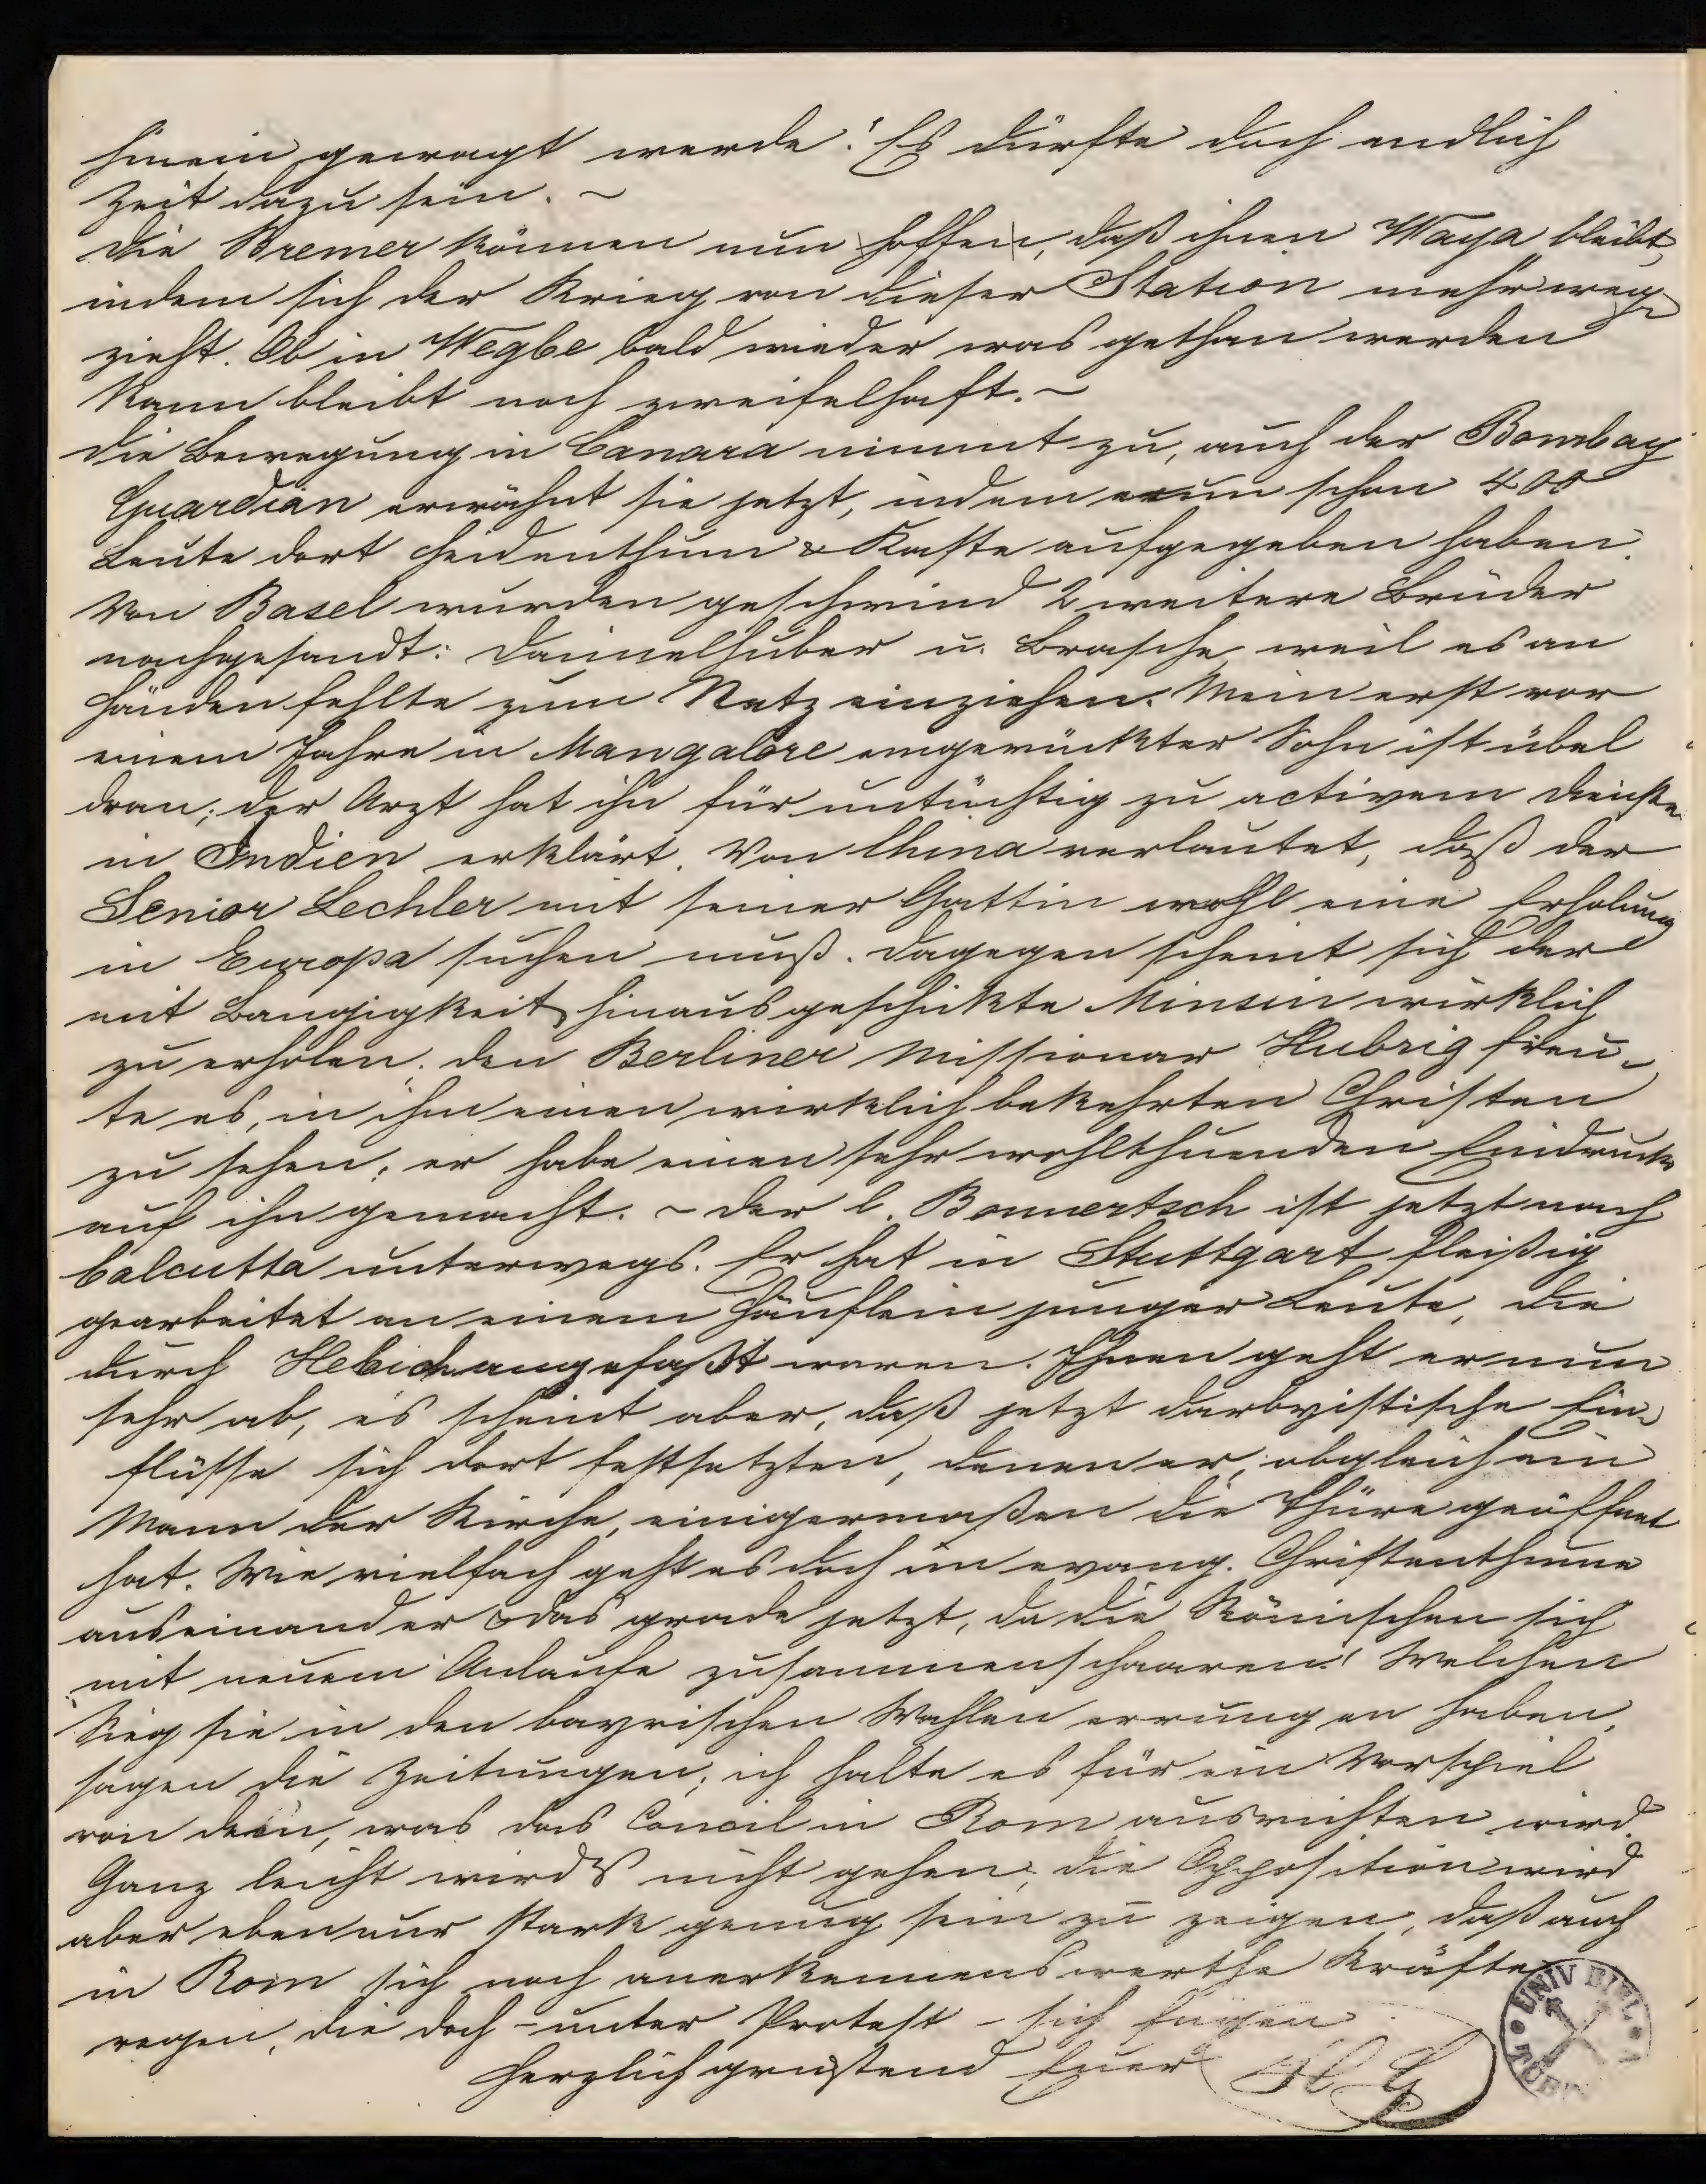 hinein gewagt werde! Es dürfte doch endlich
Zeit dazu sein. ~
Die Bremer können nun hoffen, daß ihnen Waya bleibt,
indem sich der Krieg von dieser Station mehr weg-
zieht. Ob in Wegbe bald wieder was gethan werden
kann bleibt noch zweifelhaft. ~
Die Bewegung in Canara nimmt zu, auch der Bombay
Guardian erwähnt sie jetzt, indem nun schon 400
Leute dort Heidenthum & Kaste aufgegeben haben.
Von Basel wurden geschwind 2 weitere Brüder
nachgesandt: Daimelhuber u. Brasche, weil es an
Händen fehlte zum Netz einziehen. Mein erst vor
einem Jahre in Mangalore eingerückter Sohn ist übel
dran; der Arzt hat ihn für untüchtig zu activem Dienste
in Indien erklärt. Von China verlautet, daß der
Senior Lechler mit seiner Gattin wohl eine Erholung
in Europa suchen muß. Dagegen scheint sich der
mit Bangigkeit hinausgeschickte Minsin wirklich
zu erholen; den Berliner Missionar Hubrig freu-
te es, in ihm einen wirklich bekehrten Christen
zu sehen; er habe einen sehr wohlthuenden Eindruck
auf ihn gemacht. ~ Der l. Bomwetsch ist jetzt nach
Calcutta unterwegs. Er hat in Stuttgart fleißig
gearbeitet an einem Häuflein junger Leute, die
durch Hebich angefaßt waren. Ihnen geht er nun
sehr ab, es scheint aber, daß jetzt darbyistische Ein-
flüsse sich dort festsetzten, denen er, obgleich ein
Mann der Kirche, einigermaßen die Thüre geöffnet
hat. Wie vielfach geht es doch im evang. Christenthume
auseinander & das grade jetzt, da die Römischen sich
mit neuem Anlaufe zusammenschaaren! Welchen
Sieg sie in den bayrischen Wahlen errungen haben,
sagen die Zeitungen; ich halte es für ein Vorspiel
von dem, was das Concil in Rom ausrichten wird.
Ganz leicht wirds nicht gehen; die Opposition wird
aber eben nur stark genug sein zu zeigen, daß auch
in Rom sich noch anerkennenswerthe Kräfte
regen, die doch – unter Protest – sich fügen.
Herzlich grüßend Euer HG
UNIV BIBL
TÜB